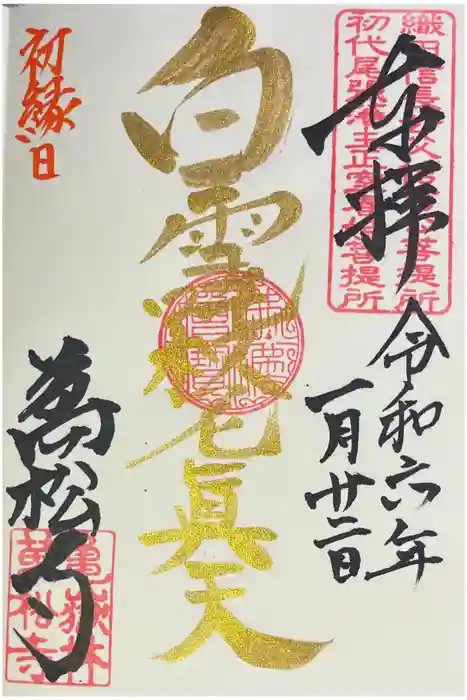 織田信長
菩提所
初代尾張藩主正室春姫菩提所
奉拝
令和六年
一月廿二日
白雪吒枳尼眞天
初縁日
萬松寺
龜嶽林
萬松寺